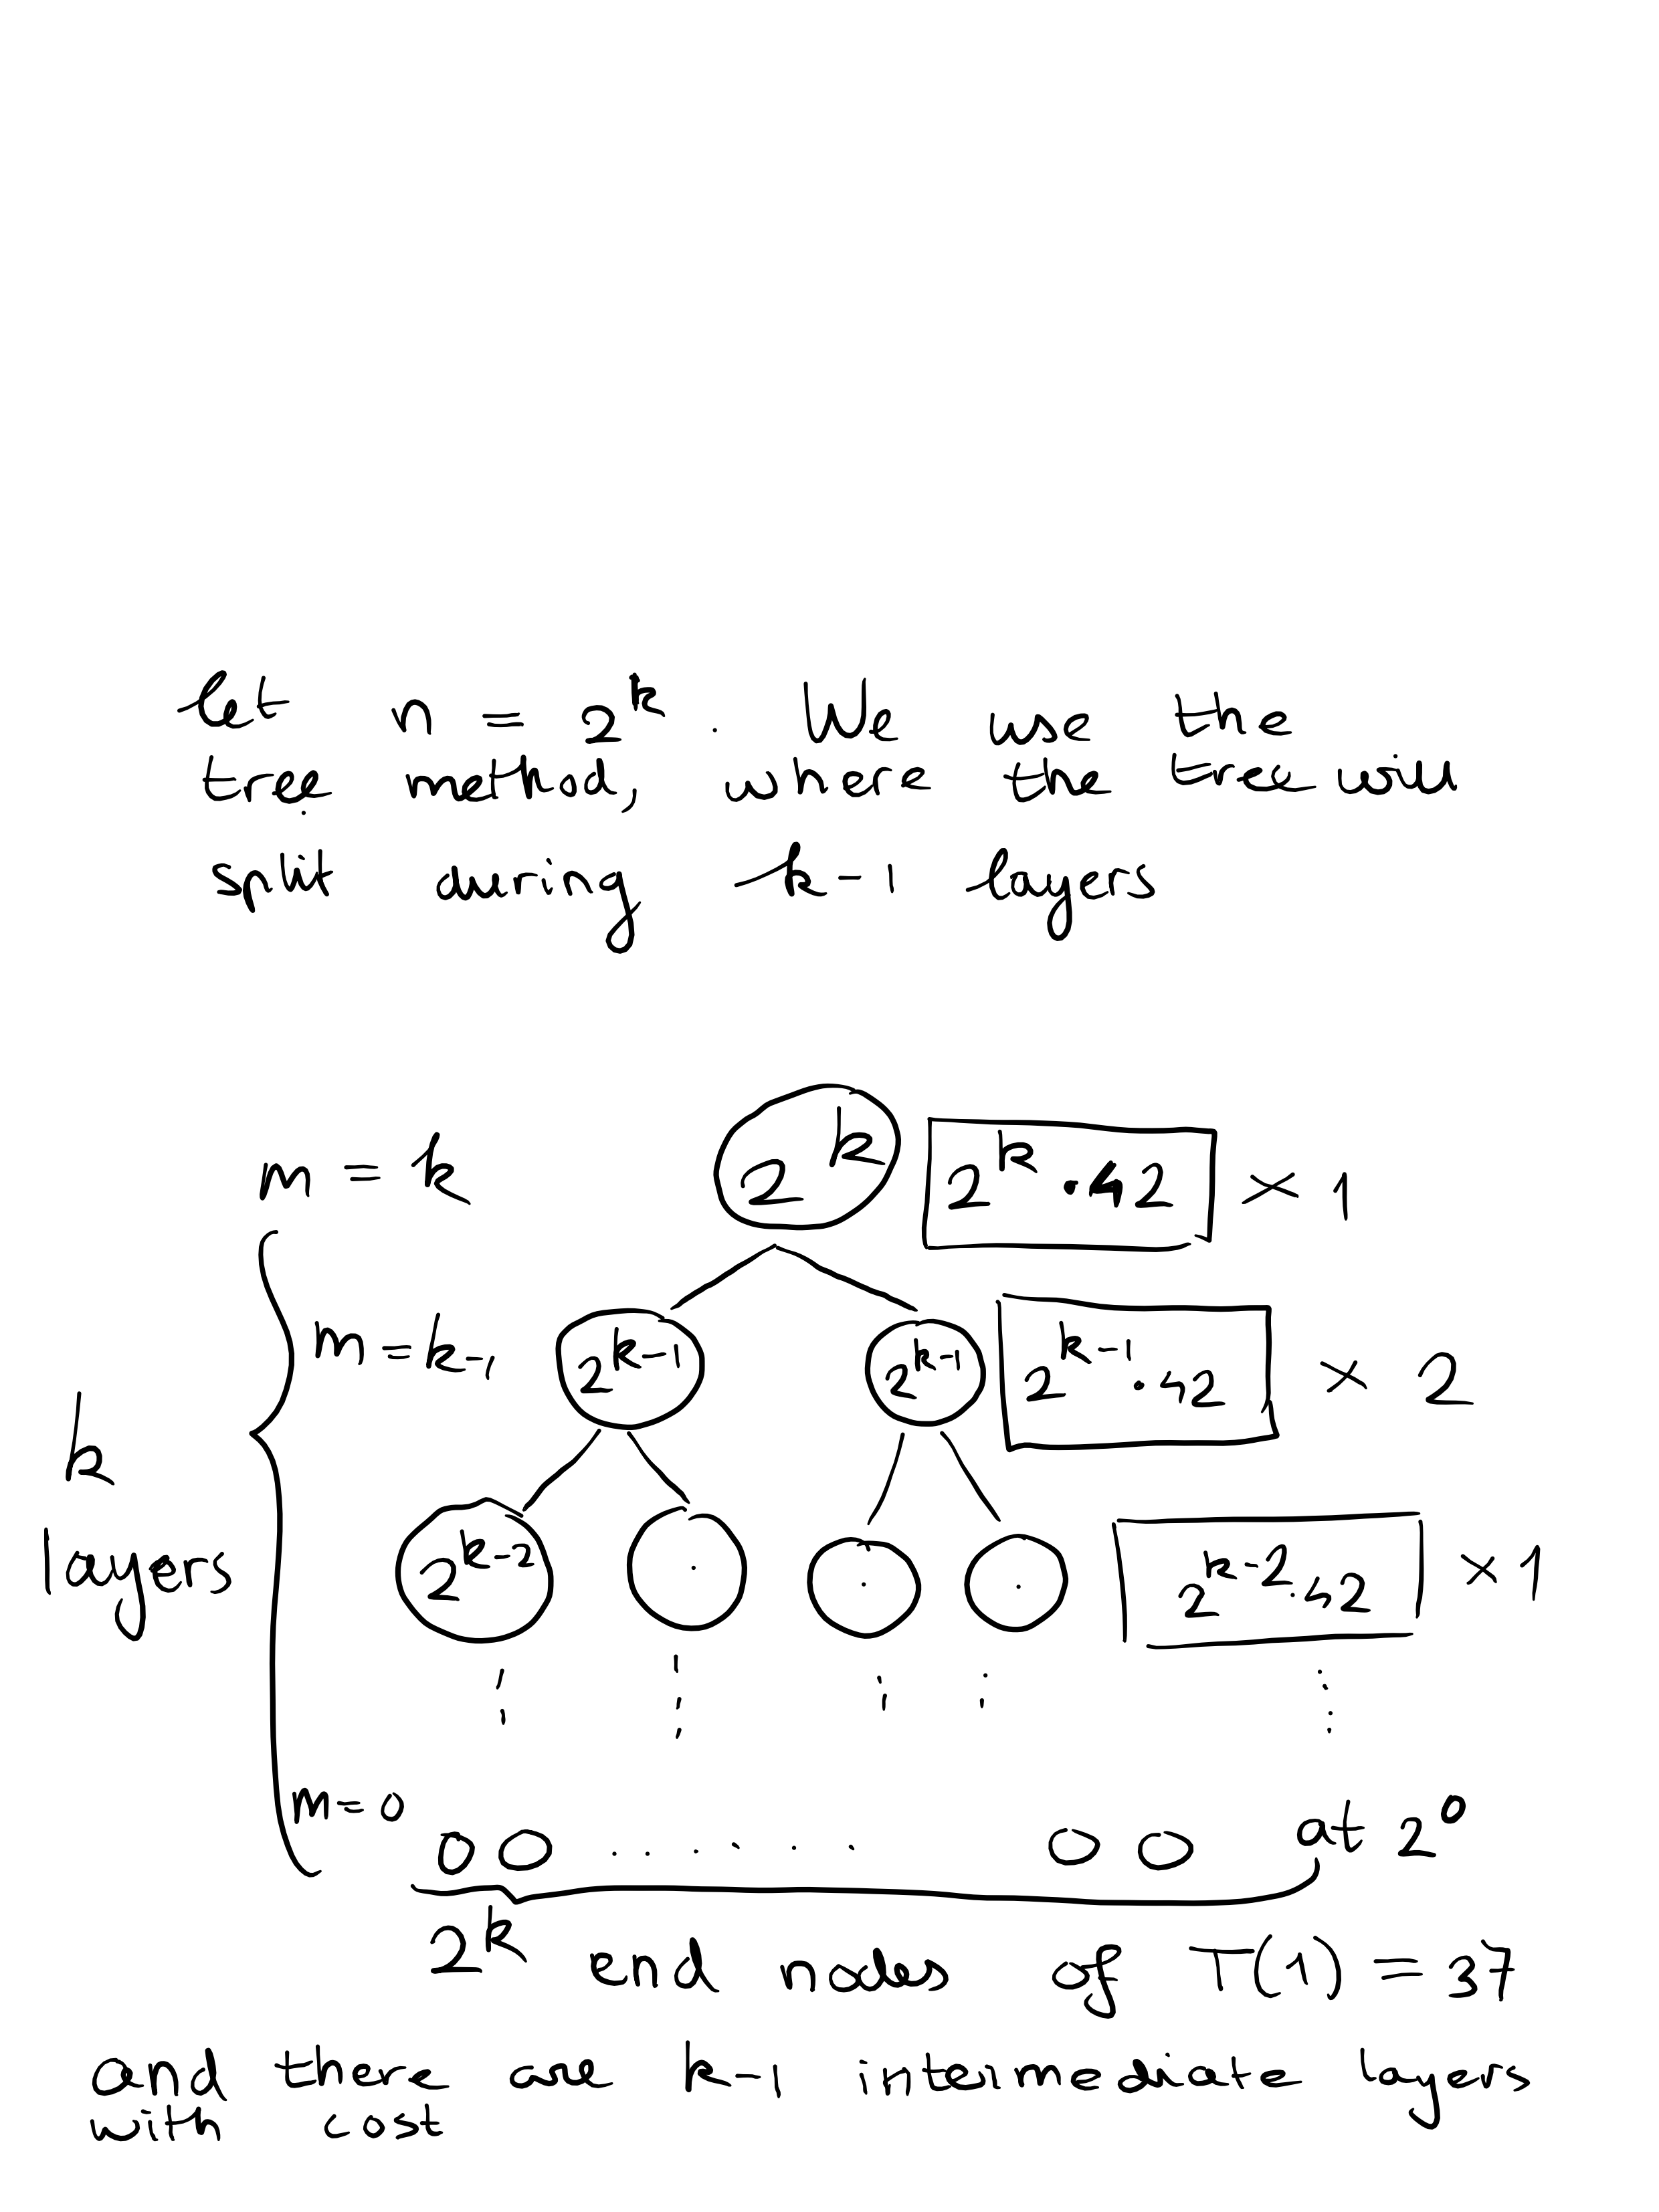 let n = 2^k . We use the
tree method, where the tree will
split during k-1 layers
m = k 2^k 2^k · 42 × 1
m = k-1 2^{k-1} 2^{k-1} 2^{k-1} · 42 × 2
k
layers
2^{k-2} 2^{k-2} · 42 × 1
m=0 at 2^0
2^k end nodes of T(1) = 37
and there are k-1 intermediate layers
with cost